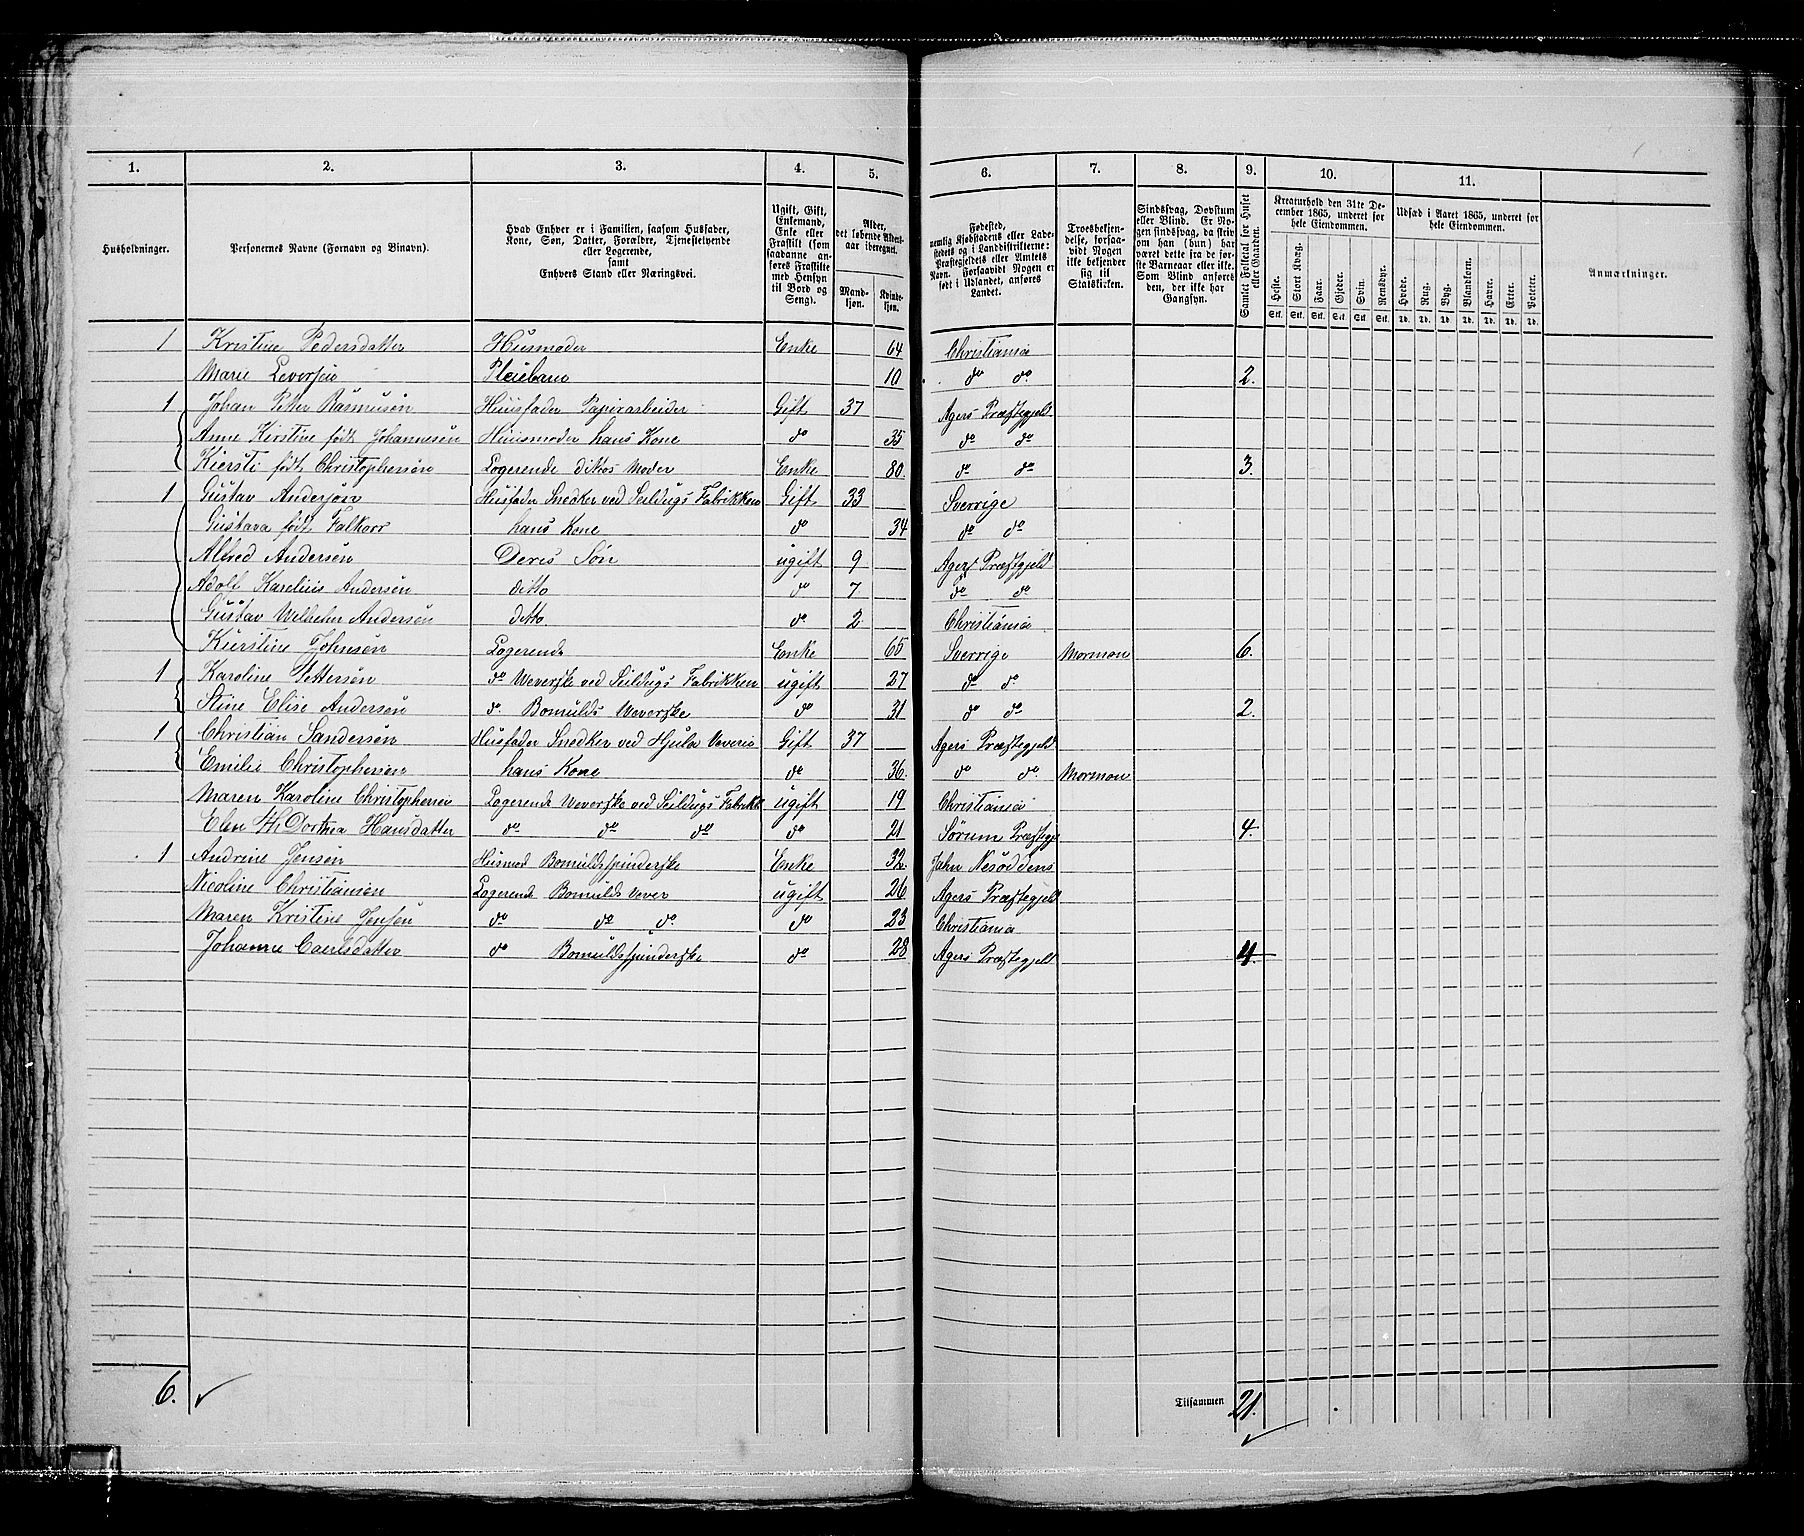 1. 2. 3. 4. 5. 6. 7. 8. 9. 10. 11.
Husholdninger.
Personernes Navne (Fornavn og Binavn).
Hvad Enhver er i Familien, saasom Husfader,
Kone, Søn, Datter, Forældre, Tjenestetyende
eller Logerende,
samt
Enhvers Stand eller Næringsvei.
Ugift, Gift,
Enkemand,
Enke eller
Fraskilt (som
saadanne an-
føres Fraskilte
med Hensyn
til Bord og
Seng).
Alder,
det løbende Alders-
aar iberegnet.
Mand-
kjøn.
Kvinde-
kjøn.
Fødested,
nemlig Kjøbstadens eller Lade-
stedets og i Landdistrikterne:
Præstegjeldets eller Amtets
Navn. Forsaavidt Nogen er
født i Udlandet, anføres
Landet.
Troesbekjen-
delse, forsaa-
vidt Nogen
ikke bekjender
sig til
Statskirken.
Sindssvag, Døvstum
eller Blind. Er No-
gen sindssvag, da skriv
om han (hun) har
været dette fra de før-
ste Barneaar eller ikke.
Som Blind anføres
den, der ikke har
Gangsyn.
Samlet Folketal for Huset
eller Gaarden.
Kreaturhold den 31te De-
cember 1865, underet for
hele Eiendommen.
Heste. Stort Kvæg. Faar. Gjeder. Svin. Rensdyr.
Stk. Stk. Stk. Stk. Stk. Stk.
Udsæd i Aaret 1865, underet for
hele Eiendommen.
Hvede. Rug. Byg. Blandkorn. Havre. Erter. Poteter.
Td. Td. Td. Td. Td. Td. Td.
Anmærkninger.
1 Kristine Pedersdatter Husmoder Enke 64 Christiania
Marie Leversen Pleiebarn 10 do do 2.
1 Johan Petter Rasmusen Huusfader Papirarbeider Gift 37 Agers Præstegjeld
Anne Kirstine født Johannesen Huusmoder hans Kone do 35 do do
Kiersti født Christophersen Logerende dittos Moder Enke 80 do do 3.
1 Gustav Andersøn Husfader Snedker ved Seildugs Fabrikken Gift 33 Sverrige
Gustava født Falkorr hans Kone do 34 do do
Alfred Andersøn Deres Søn ugift 9 Agers Præstgjeld
Adolf Karelius Andersøn ditto do 7 do do
Gustav Wilhelm Andersøn ditto do 2 Christiania
Kierstine Johnsøn Logerende Enke 65 Sverrige Mormon 6.
1 Karoline Pettersøn do Veverske ved Seildugs Fabrikken ugift 27 do do
Stine Elise Andersøn do Bomulds Veverske do 31 do do 2.
1 Christian Sandersøn Husfader Snedker ved Hjula Veveri Gift 37 Agers Præstegjeld
Emilie Christophersen hans Kone do 36. do do Mormon
Maren Karoline Christophersen Logerende Veverske ved Seildugs Fabrikk ugift 19 Christiania
Elen Dorthea Hansdatter do do do do 21 Sørum Præstegj 4.
1 Andrine Jensen Husmod Bomuldsspinderske Enke 32. Nesoddens
Nicoline Christiansen Logerende Bomulds vever ugift 26 Agers Præstegjeld
Maren Kristine Jensen do do do do 23 Christiania
Johanne Caerlsdatter do Bomuldsspinderske do 28 Agers Præstegjeld 4.
6.
Tilsammen 21.